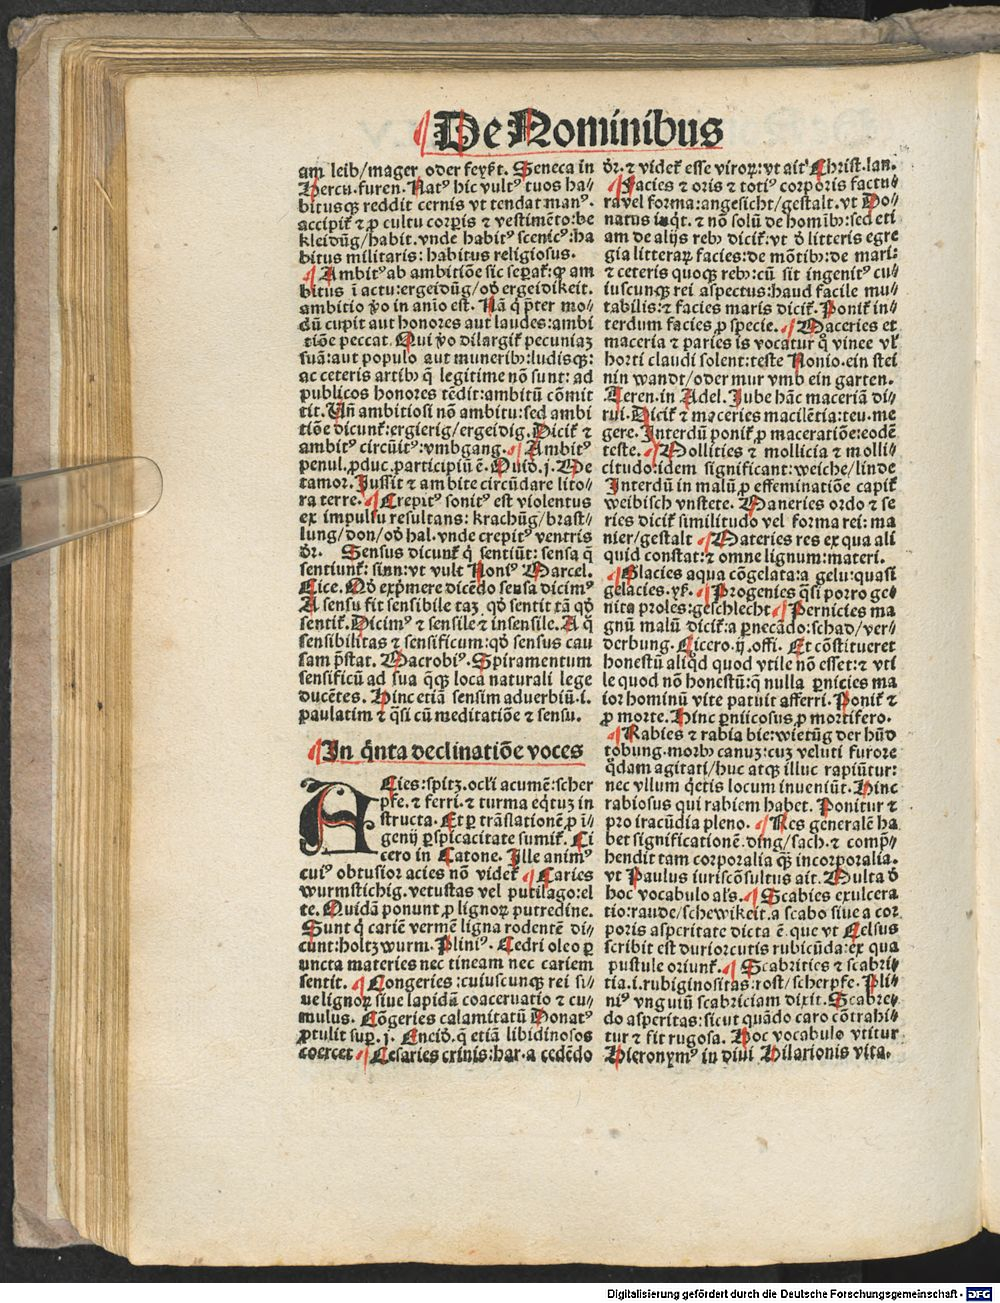 De Nominibus
am leib/mager oder feyßt. Seneca in
Hercu.furen. Natꝰ hic vultꝰ tuos ha⸗
bitusqꝫ reddit cernis vt tendat manꝰ.
accipit᷑ ⁊ ꝓ cultu corꝑis ⁊ vestimēto:be
kleidūg/habit. vnde habitꝰ scenicꝰ:ha
bitus militaris: habitus religiosus.
¶ Ambitꝰ ab ambitiōe sic seꝑat᷑: qꝫ am
bitus ī actu:ergeidūg/oď ergeidikeit.
ambitio ꝟo in anīo est. Nā q̇ p̄ter mo⸗
dū cupit aut honores aut laudes:ambi
tiōe peccat. Qui ꝟo dilargit᷑ pecuniaꝫ
suā:aut populo aut munerib⁹:ludisqꝫ:
ac ceteris artib⁹ q̄ legitime nō sunt: ad
publicos honores tēdit:ambitū cōmit
tit. Vn̄ ambitiosi nō ambitu:sed ambi
tiōe dicunt᷑:ergierig/ergeidig. Dicit᷑ ⁊
ambitꝰ circūitꝰ:vmbgang. ¶ Ambitꝰ
penul.ꝓduc.participiū ē. Ouid.j. Me
tamor. Jussit ⁊ ambite circūdare lito⸗
ra terre. ¶ Crepitꝰ sonitꝰ est violentus
ex impulsu resultans: krachūg/brast⸗
lung/don/oď hal. vnde crepitꝰ ventris
ďr. Sensus dicunt᷑ q̇ sentiūt: sensa q̄
sentiunt᷑: sinn:vt vult Noniꝰ Marcel.
Cice. Qď exp̄mere dicēdo sensa dicimꝰ
A sensu fit sensibile taꝫ qď sentit tā qď
sentit᷑. Dicimꝰ ⁊ sensile ⁊ insensile. A q̊
sensibilitas ⁊ sensificum:qď sensus cau
sam p̄stat. Macrobiꝰ. Spiramentum
sensificū ad sua q̄qꝫ loca naturali lege
ducētes. Hinc etiā sensim adverbiū.i.
paulatim ⁊ q̄si cū meditatiōe ⁊ sensu.
¶ In q̇nta declinatiōe voces
ACies:spitz.oc̄li acumē:scher
pfe. ⁊ ferri. ⁊ turma eq̇tuꝫ in
structa. Et ꝑ trāslationē ꝓ ī⸗
genij ꝑspicacitate sumit᷑. Ci
cero in Catone. Ille animꝰ
cuiꝰ obtusior acies nō videt᷑ ¶ Caries
wurmstichig. vetustas vel putilago:el
te. Quidā ponunt ꝓ lignoꝝ putredine.
Sunt q̇ cariē vermē ligna rodentē di⸗
cunt:holtzwurm. Pliniꝰ. Cedri oleo ꝑ
uncta materies nec tineam nec cariem
sentit. ¶ Congeries:cuiuscunqꝫ rei si⸗
ue lignoꝝ siue lapidū coaceruatio ⁊ cu⸗
mulus. Cōgeries calamitatū Donatꝰ
ꝓtulit suꝑ.j. Eneid. q̄ etiā libidinosos
coercet ¶ Cesaries crinis:har.a cedēdo
ďr. ⁊ videt᷑ esse viroꝝ:vt ait Christ.lan.
¶ Facies ⁊ oris ⁊ totiꝰ corporis factu⸗
ra vel forma:angesicht/gestalt. vt Do⸗
natus inq̇t. ⁊ nō solū de homīb⁹:sed eti
am de alijs reb⁹ dicit᷑:vt ď litteris egre
gia litteraꝝ facies:de mōtib⁹:de mari:
⁊ ceteris quoqꝫ reb⁹:cū sit ingenitꝰ cu⸗
iuscunqꝫ rei aspectus:haud facile mu⸗
tabilis:⁊ facies maris dicit᷑. Ponit᷑ in⸗
terdum facies ꝓ specie. ¶ Maceries et
maceria ⁊ paries is vocatur q̊ vinee vĺ
horti claudi solent:teste Nonio. ein stei
nin wandt/oder mur vmb ein garten.
Teren.in Adel. Jube hāc maceriā di⸗
rui. Dicit᷑ ⁊ maceries macilētia:teu.me
gere. Interdū ponit᷑ ꝓ maceratiōe:eodē
teste. ¶ Mollities ⁊ mollicia ⁊ molli⸗
citudo:idem significant:weiche/linde
Interdū in malū ꝓ effeminatiōe capit᷑
weibisch vnstete. Maneries ordo ⁊ se
ries dicit᷑ similitudo vel forma rei: ma
nier/gestalt ¶ Materies res ex qua ali
quid constat:⁊ omne lignum:materi.
¶ Glacies aqua cōgelata:a gelu:quasi
gelacies.yß. ¶ Progenies q̄si porro ge⸗
nita proles:geschlecht ¶ Pernicies ma
gnū malū dicit᷑:a ꝑnecādo:schad/ver⸗
derbung. Cicero.ij.offi. Et cōstitueret
honestū aliq̇d quod vtile nō esset:⁊ vti
le quod nō honestū:q̄ nulla ꝑnicies ma
ior hominū vite patuit afferri. Ponit᷑ ⁊
ꝓ morte. Hinc ꝑniicosus ꝓ mortifero.
¶ Rabies ⁊ rabia bie:wietūg der hūd
tobung.morb⁹ canuꝫ:cuꝫ veluti furore
q̊dam agitati/huc atqꝫ illuc rapiūtur:
nec vllum q̇etis locum inveniūt. Hinc
rabiosus qui rabiem habet. Ponitur ⁊
pro iracūdia pleno. ¶ Res generalē ha
bet significationē.ding/sach. ⁊ comp̄⸗
hendit tam corporalia q̄ꝫ incorporalia.
vt Paulus iuriscōsultus ait. Multa ď
hoc vocabulo al̄s. ¶ Scabies exulcera
tio:raude/schewikeit.a scabo siue a cor
poris asperitate dicta ē que vt Celsus
scribit est duriorcutis rubicūda:ex qua
pustule oriunt᷑. ¶ Scabrities ⁊ scabri⸗
tia.i.rubiginositas:rost/scherpfe. Pli⸗
niꝰ vnguiū scabriciam dixit. Scabre⸗
do asperitas:sicut quādo caro cōtrahi⸗
tur ⁊ fit rugosa. Hoc vocabulo vtitur
Hieronymꝰ in diui Hilarionis vita.
Digitalisierung gefördert durch die Deutsche Forschungsgemeinschaft - DFG